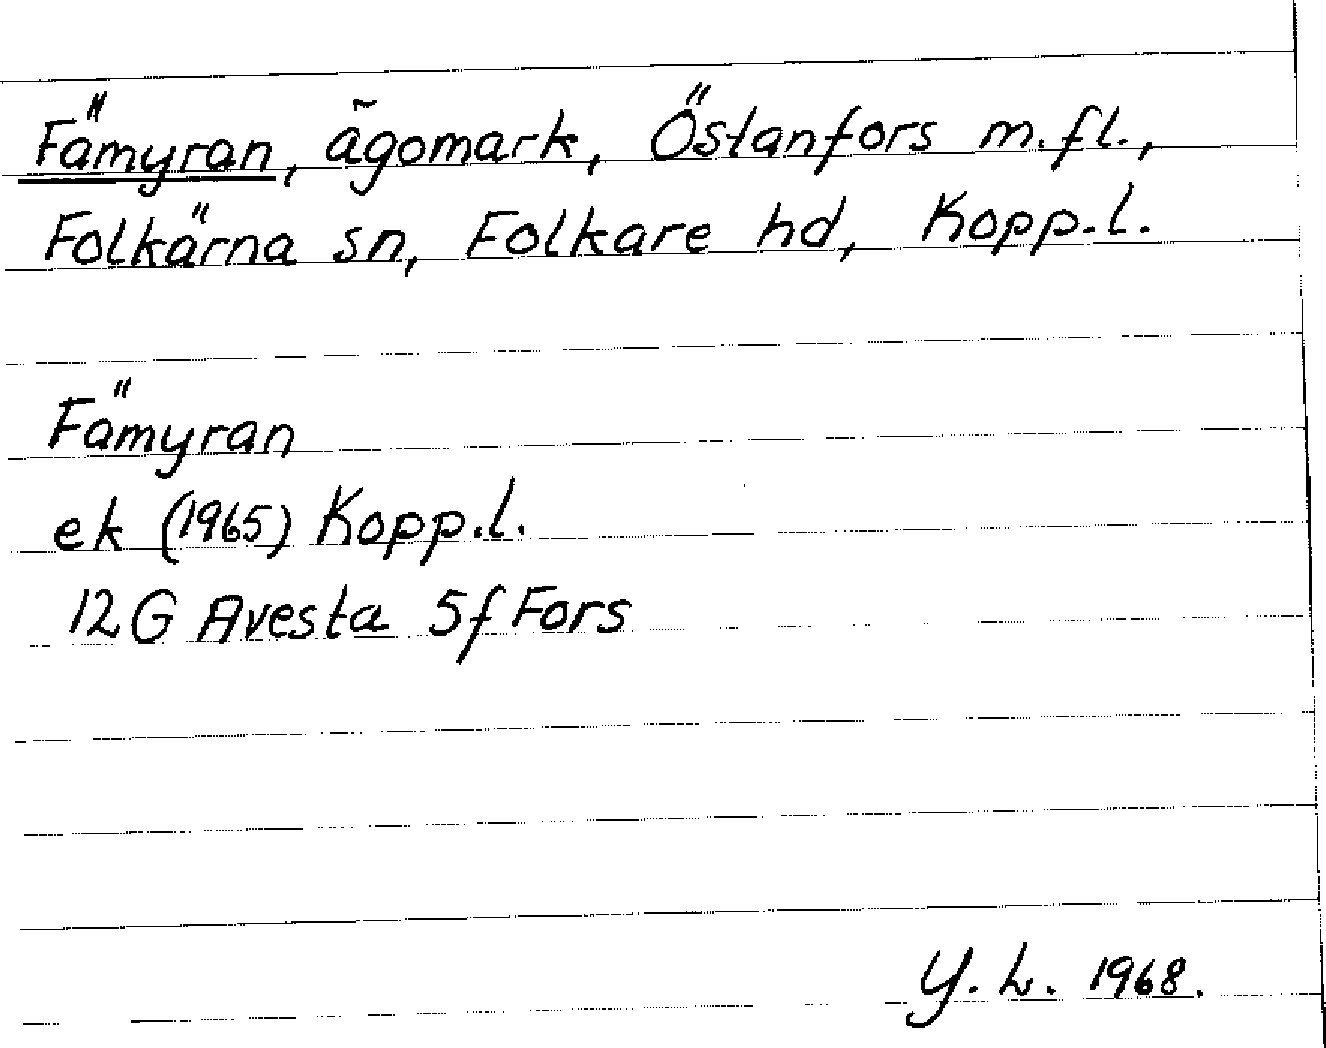 Fämyran, ägomark, Östanfors m.fl.,
Folkärna sn, Folkare hd, Kopp.l.
Fämyran
ek (1965) Kopp.l.
12G Avesta 5f Fors
Y.L. 1968.